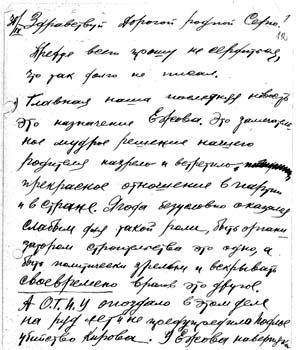 30/IX Здравствуй Дорогой родной Серго!
Прежде всего прошу не сердиться,
что так долго не писал.
1) Главная наша последняя новость
это назначение Ежова. Это замечатель
ное мудрое решение нашего
родителя назрело и встретило
прекрасное отношение в партии
и в стране. Ягода безусловно оказался
слабым для такой роли, быть органи
затором строительства это одно, а
быть политически зрелым и вскрывать
своевременно врагов это другое.
А ОГПУ опоздало в этом деле
на ряд лет и не предупредило подлое
убийство Кирова. У Ежова наверняка